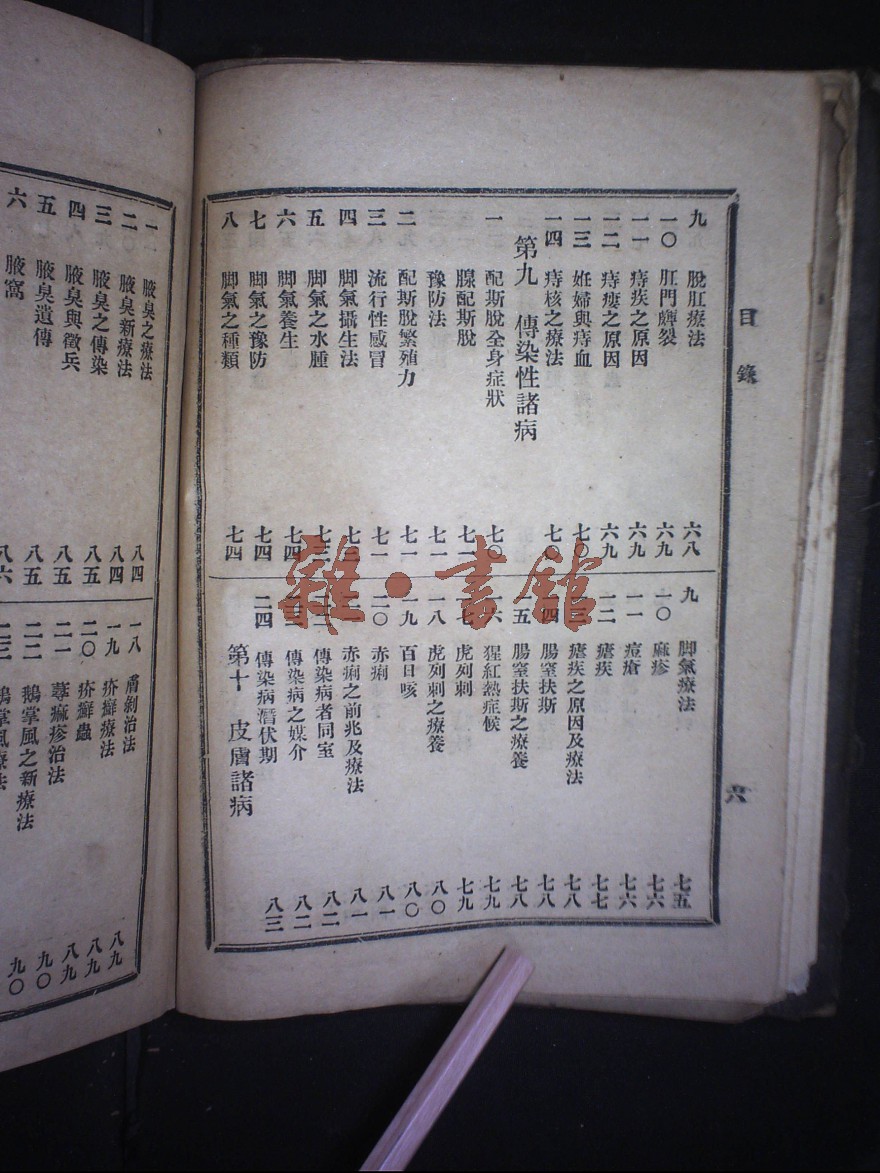 目錄
六
九 脫肛療法 六八
一〇 肛門皸裂 六九
一一 痔疾之原因 六九
一二 痔瘻之原因 六九
一三 妊婦與痔血 七〇
一四 痔核之療法 七〇
第九 傳染性諸病
一 配斯脫全身症狀 七〇
腺配斯脫 七一
豫防法 七一
二 配斯脫繁殖力 七一
三 流行性感冒 七一
四 脚氣攝生法 七三
五 脚氣之水腫 七三
六 脚氣養生 七四
七 脚氣之豫防 七四
八 脚氣之種類 七四
九 脚氣療法 七五
一〇 麻疹 七六
一一 痘瘡 七六
一二 瘧疾 七七
一三 瘧疾之原因及療法 七八
一四 腸窒扶斯 七八
一五 腸窒扶斯之療養 七八
一六 猩紅熱症候 七九
一七 虎列剌 七九
一八 虎列剌之療養 八〇
一九 百日咳 八〇
二〇 赤痢 八一
赤痢之前兆及療法 八一
傳染病者同室 八二
傳染病之媒介 八二
二四 傳染病潛伏期 八三
第十 皮膚諸病
一 腋臭之療法 八四
二 腋臭新療法 八四
三 腋臭之傳染 八五
四 腋臭與徵兵 八五
五 腋臭遺傳 八五
六 腋窩 八六
一八 膚剝治法 八九
一九 疥癬療法 八九
二〇 疥癬蟲 八九
二一 蕁痲疹治法 九〇
二二 鵝掌風之新療法 九〇
二三 鵝掌風療法
雜·書館